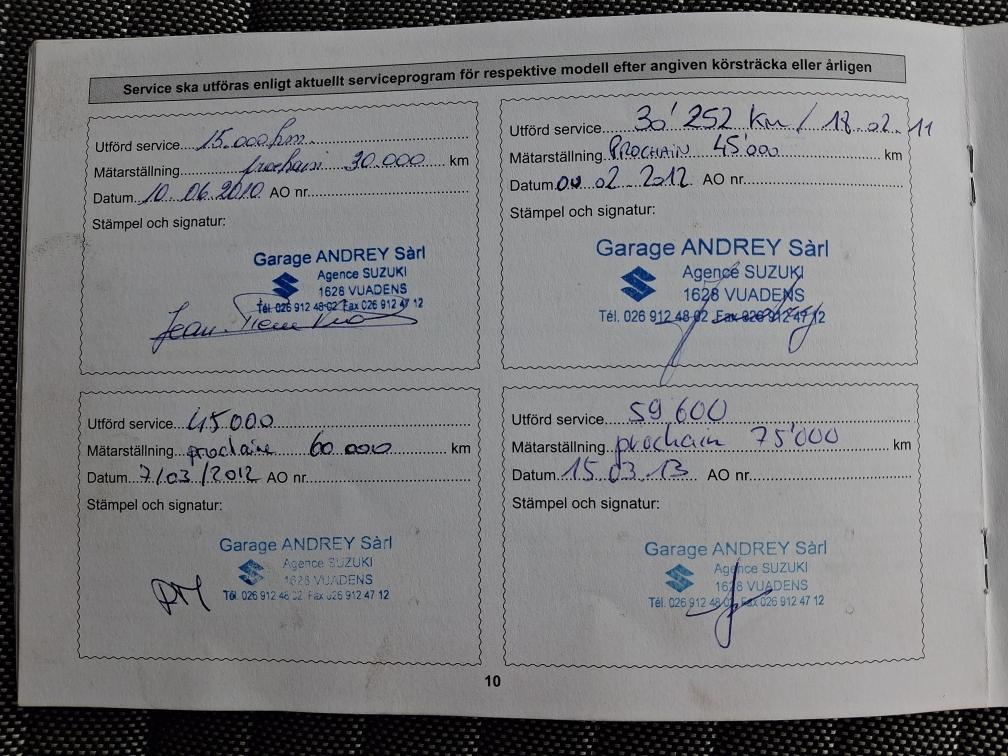 Service ska utföras enligt aktuellt serviceprogram för respektive modell efter angiven körsträcka eller årligen
Utförd service 15.000 km
Mätarställning prochain 30.000 km
Datum 10.06.2010 AO nr
Stämpel och signatur:
Garage ANDREY Sàrl
Agence SUZUKI
1628 VUADENS
Tél. 026 912 48 02 Fax 026 912 47 12
Utförd service 30'252 km / 18.02.11
Mätarställning PROCHAIN 45'000 km
Datum 02.2012 AO nr
Stämpel och signatur:
Garage ANDREY Sàrl
Agence SUZUKI
1628 VUADENS
Tél. 026 912 48 02 Fax 026 912 47 12
Utförd service 45000
Mätarställning prochaine 60 000 km
Datum 7/03/2012 AO nr
Stämpel och signatur:
Garage ANDREY Sàrl
Agence SUZUKI
1628 VUADENS
Tél. 026 912 48 02 Fax 026 912 47 12
Utförd service 59 600
Mätarställning prochain 75'000 km
Datum 15.03.13 AO nr
Stämpel och signatur:
Garage ANDREY Sàrl
Agence SUZUKI
1628 VUADENS
Tél. 026 912 48 02 Fax 026 912 47 12
10